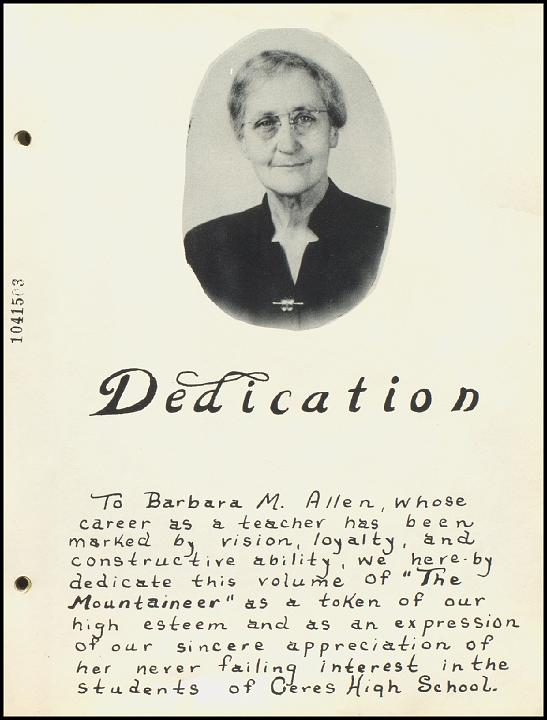 1041503
Dedication
To Barbara M. Allen, whose
career as a teacher has been
marked by vision, loyalty, and
constructive ability, we here-by
dedicate this volume of "The
Mountaineer" as a token of our
high esteem and as an expression
of our sincere appreciation of
her never failing interest in the
students of Ceres High School.